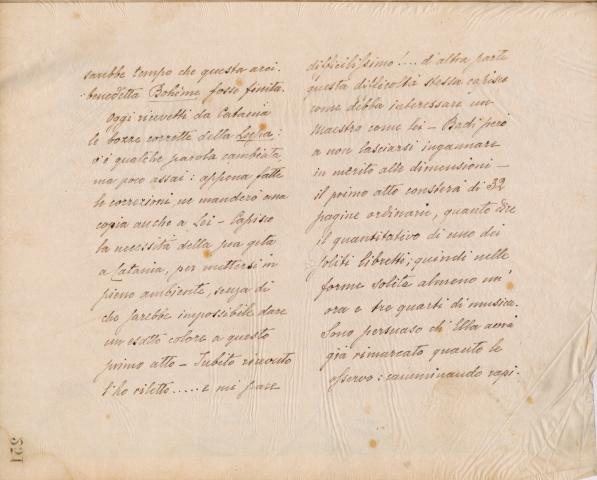 sarebbe tempo che questa arci-
benedetta Bohème fosse finita.
Oggi ricevetti da Catania
le bozze corrette della Lupa:
v'è qualche parola cambiata,
ma poco assai: appena fatte
le correzioni, ne manderò una
copia anche a Lei - Capisco
la necessità della sua gita
a Catania, per mettersi in
pieno ambiente, senza di
che sarebbe impossibile dare
un esatto colore a questo
primo atto - Subito ricevuto
l'ho riletto ..... e mi pare
difficilissimo!... d'altra parte
questa difficoltà stessa capisco
come debba interessare un
Maestro come lei - Badi però
a non lasciarsi ingannare
in merito alle dimensioni -
il primo atto consterà di 32
pagine ordinarie, quanto dire
il quantitativo di uno dei
soliti libretti; quindi nelle
forme solite almeno un'
ora e tre quarti di musica.
Sono persuaso ch'Ella avrà
già rimarcato quanto le
osservo: camminando rapi-
321